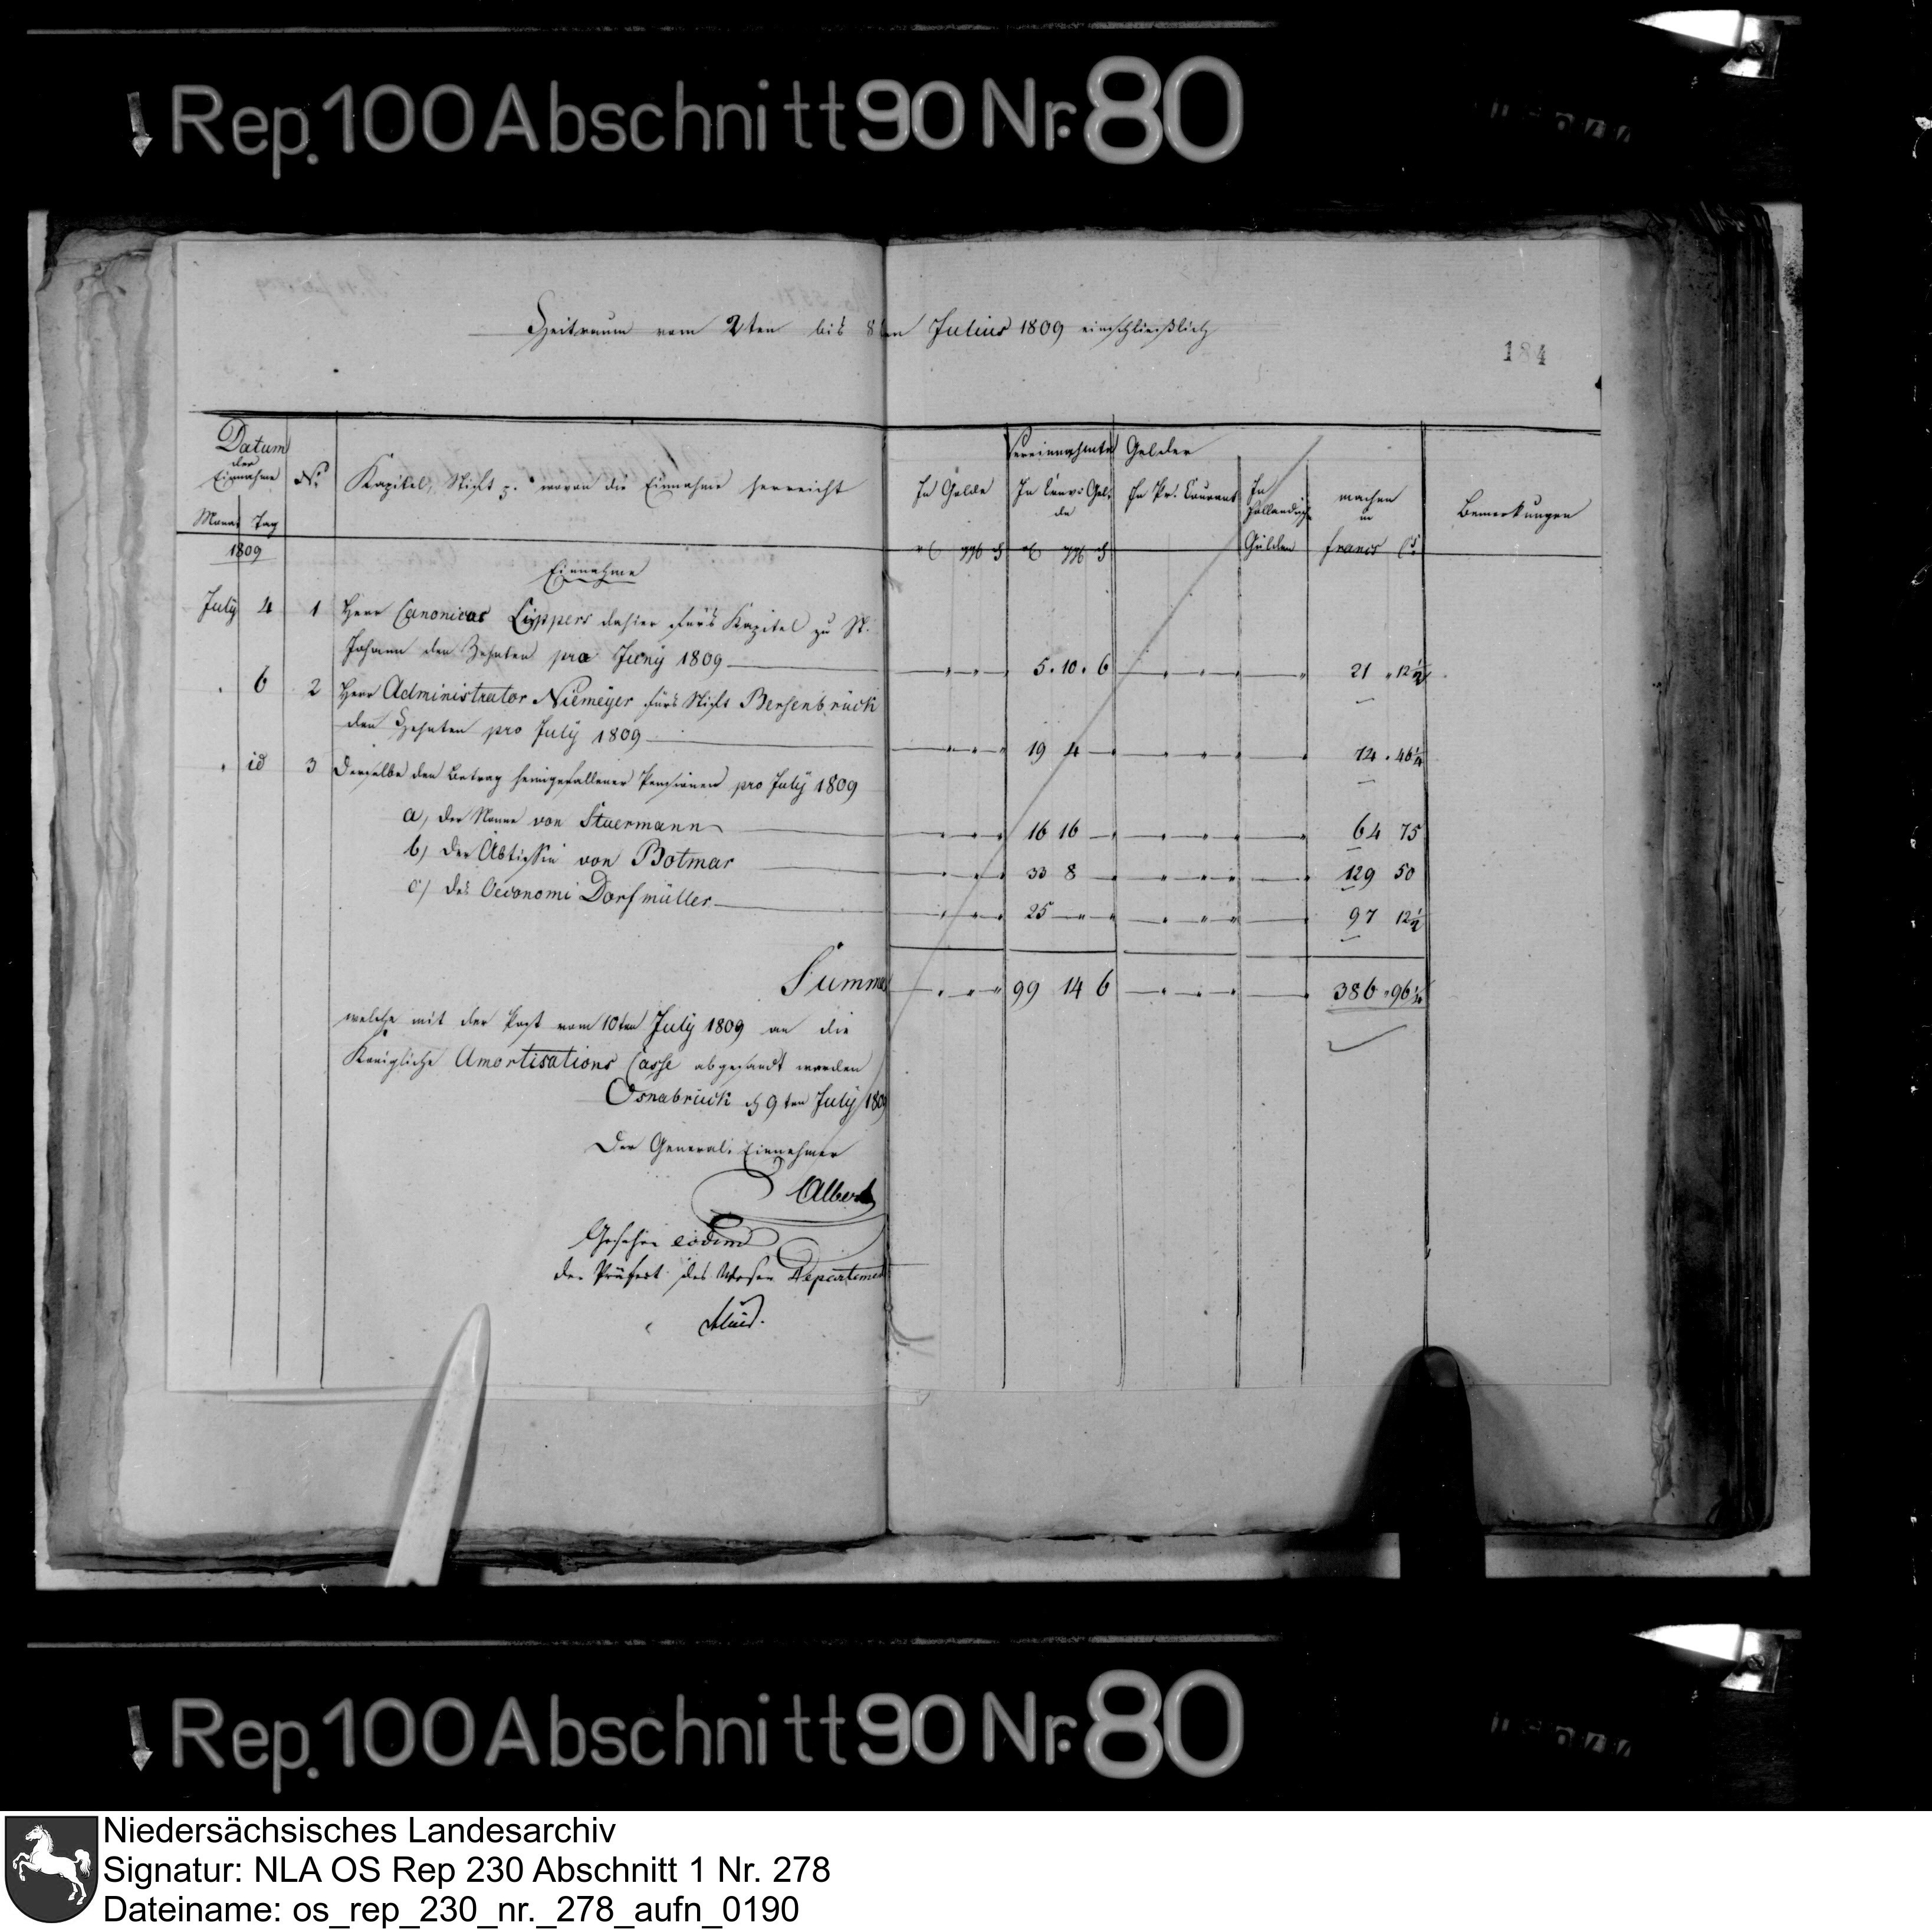 Rep. 100 Abschnitt 90 Nr. 80
Zeitraum vom 2ten bis 8ten Julius 1809 einschließlich
184
Datum
der
Einnahme
No.
Kapitel, Stift p. wovon die Einnahme herreicht
Vereinnahmte Gelder
In Golde
In Conv: Gel-
de
In Pr. Courant
In
Holländische
Gulden
machen
in
francs Cs
Bemerkungen
Monat Tag
1809
Einnahme
July 4 1 Herr Canonicus Lippers dahier fürs Kapitel zu St.
Johann den Zehnten pro Juny 1809 5. 10. 6 21 . 12½
. 6 2 Herr Administrator Niemeyer fürs Stift Bersenbrück
den Zehnten pro July 1809 19 4 74 . 46¼
. id 3 Derselbe den Betrag heimgefallener Pensionen pro July 1809
a, der Nonne von Stuermann 16 16 64 75
b) der Äbtissin von Botmar 33 8 129 50
c) des Oeconomi Dorfmüller 25 97 12½
Summa 99 14 6 386 . 96¼
welche mit der Post vom 10ten July 1809 an die
Königliche Amortisations Casse abgesandt worden
Osnabrück d 9ten July 1809
Der General-Einnehmer
Albers
Gesehen eodem
der Präfect des Weser Departements
Rep. 100 Abschnitt 90 Nr. 80
Niedersächsisches Landesarchiv
Signatur: NLA OS Rep 230 Abschnitt 1 Nr. 278
Dateiname: os_rep_230_nr._278_aufn_0190